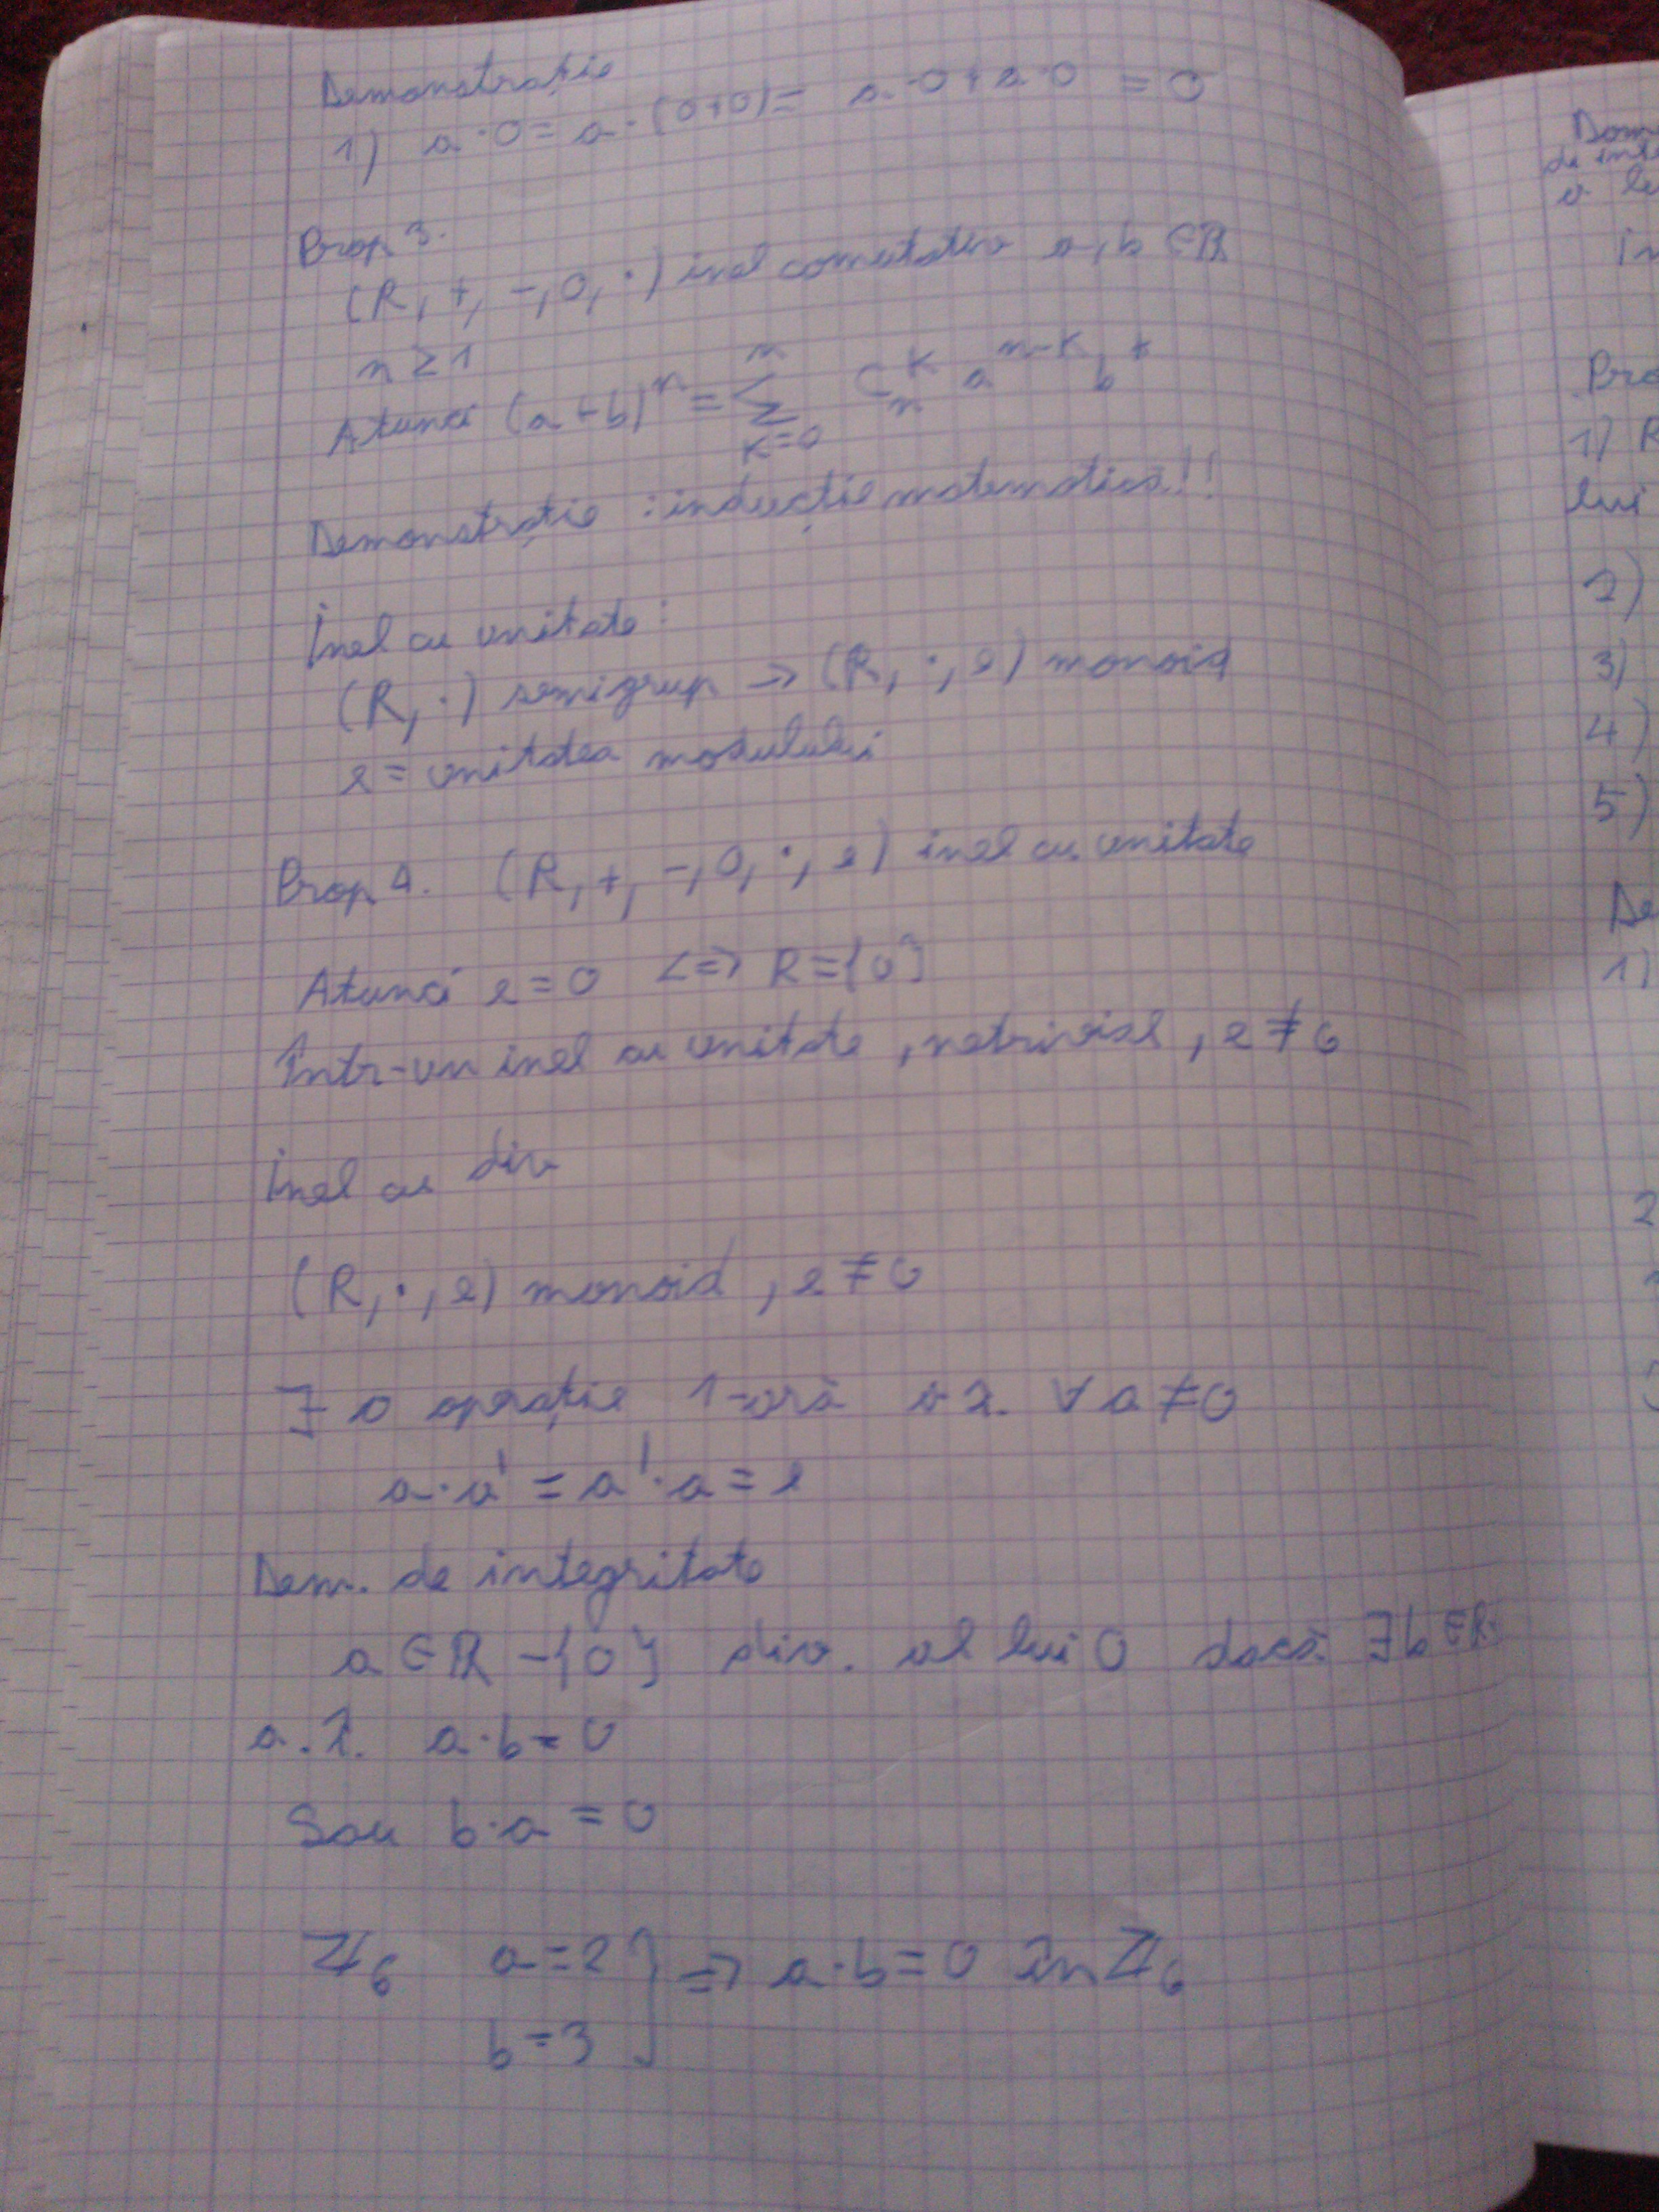 Demonstrație
1) a·0 = a·(0+0) = a·0 + a·0 = 0
Prop 3.
(R, +, -, 0, ·) inel comutativ a, b ∈ R
n ≥ 1
Atunci (a+b)^n = ∑_{k=0}^{n} C_n^k a^{n-k} b^k
Demonstrație : inducție matematică!!
Inel cu unitate:
(R, ·) semigrup → (R, ·, e) monoid
e = unitatea modulului
Prop 4. (R, +, -, 0, ·, e) inel cu unitate
Atunci e = 0 <=> R = {0}
Într-un inel cu unitate, netrivial, e ≠ 0
Inel cu div
(R, ·, e) monoid, e ≠ 0
∃ o operație 1-ară ∀ a ≠ 0
a·a' = a'·a = e
Dem. de integritate
a ∈ R - {0} div. al lui 0 dacă ∃ b ∈ R
a.î. a·b = 0
Sau b·a = 0
ℤ₆ a = 2 } => a·b = 0 în ℤ₆
b = 3
Dom
de inte
Pro
1) R
lui
2)
3)
4)
5)
De
1)
2